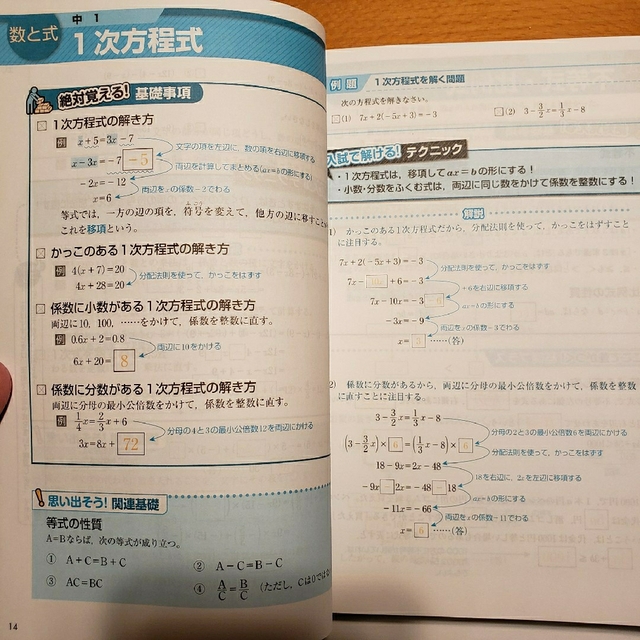 数と式
中1
1次方程式
絶対覚える! 基礎事項
1次方程式の解き方
例 x+5=3x-7
文字の項を左辺に、数の項を右辺に移項する
x-3x=-7 -5
両辺を計算してまとめる(ax=bの形にする)
-2x=-12
両辺をxの係数-2でわる
x=6
等式では、一方の辺の項を、符号を変えて、他方の辺に移すこと
これを移項という。
かっこのある1次方程式の解き方
例 4(x+7)=20
分配法則を使って、かっこをはずす
4x+28=20
係数に小数がある1次方程式の解き方
両辺に10, 100, ……をかけて、係数を整数に直す。
例 0.6x+2=0.8
両辺に10をかける
6x+20= 8
係数に分数がある1次方程式の解き方
両辺に分母の最小公倍数をかけて、係数を整数に直す。
例 1/4x=2/3x+6
分母の4と3の最小公倍数12を両辺にかける
3x=8x+ 72
思い出そう! 関連基礎
等式の性質
A=Bならば、次の等式が成り立つ。
① A+C=B+C
② A-C=B-C
③ AC=BC
④ A/C=B/C (ただし、Cは0ではな
14
例題 1次方程式を解く問題
次の方程式を解きなさい。
(1) 7x+2(-5x+3)=-3
(2) 3-3/2x=1/3x-8
入試で解ける! テクニック
・1次方程式は、移項してax=bの形にする!
・小数・分数をふくむ式は、両辺に同じ数をかけて係数を整数にする!
解説
1) かっこのある1次方程式だから、分配法則を使って、かっこをはずすこと
に注目する。
7x+2(-5x+3)=-3
分配法則を使って、かっこをはずす
7x- 10x +6=-3
+6を右辺に移項する
7x-10x=-3 -6
ax=bの形にする
-3x=-9
両辺をxの係数-3でわる
x= 3 ……(答)
2) 係数に分数があるから、両辺に分母の最小公倍数をかけて、係数を整数
に直すことに注目する。
3-3/2x=1/3x-8
分母の2と3の最小公倍数6を両辺にかける
(3-3/2x)× 6 =(1/3x-8)× 6
分配法則を使って、かっこをはずす
18-9x=2x-48
18を右辺に、2xを左辺に移項する
-9x - 2x=-48 - 18
ax=bの形にする
-11x=-66
両辺をxの係数-11でわる
x= 6 ……(答)